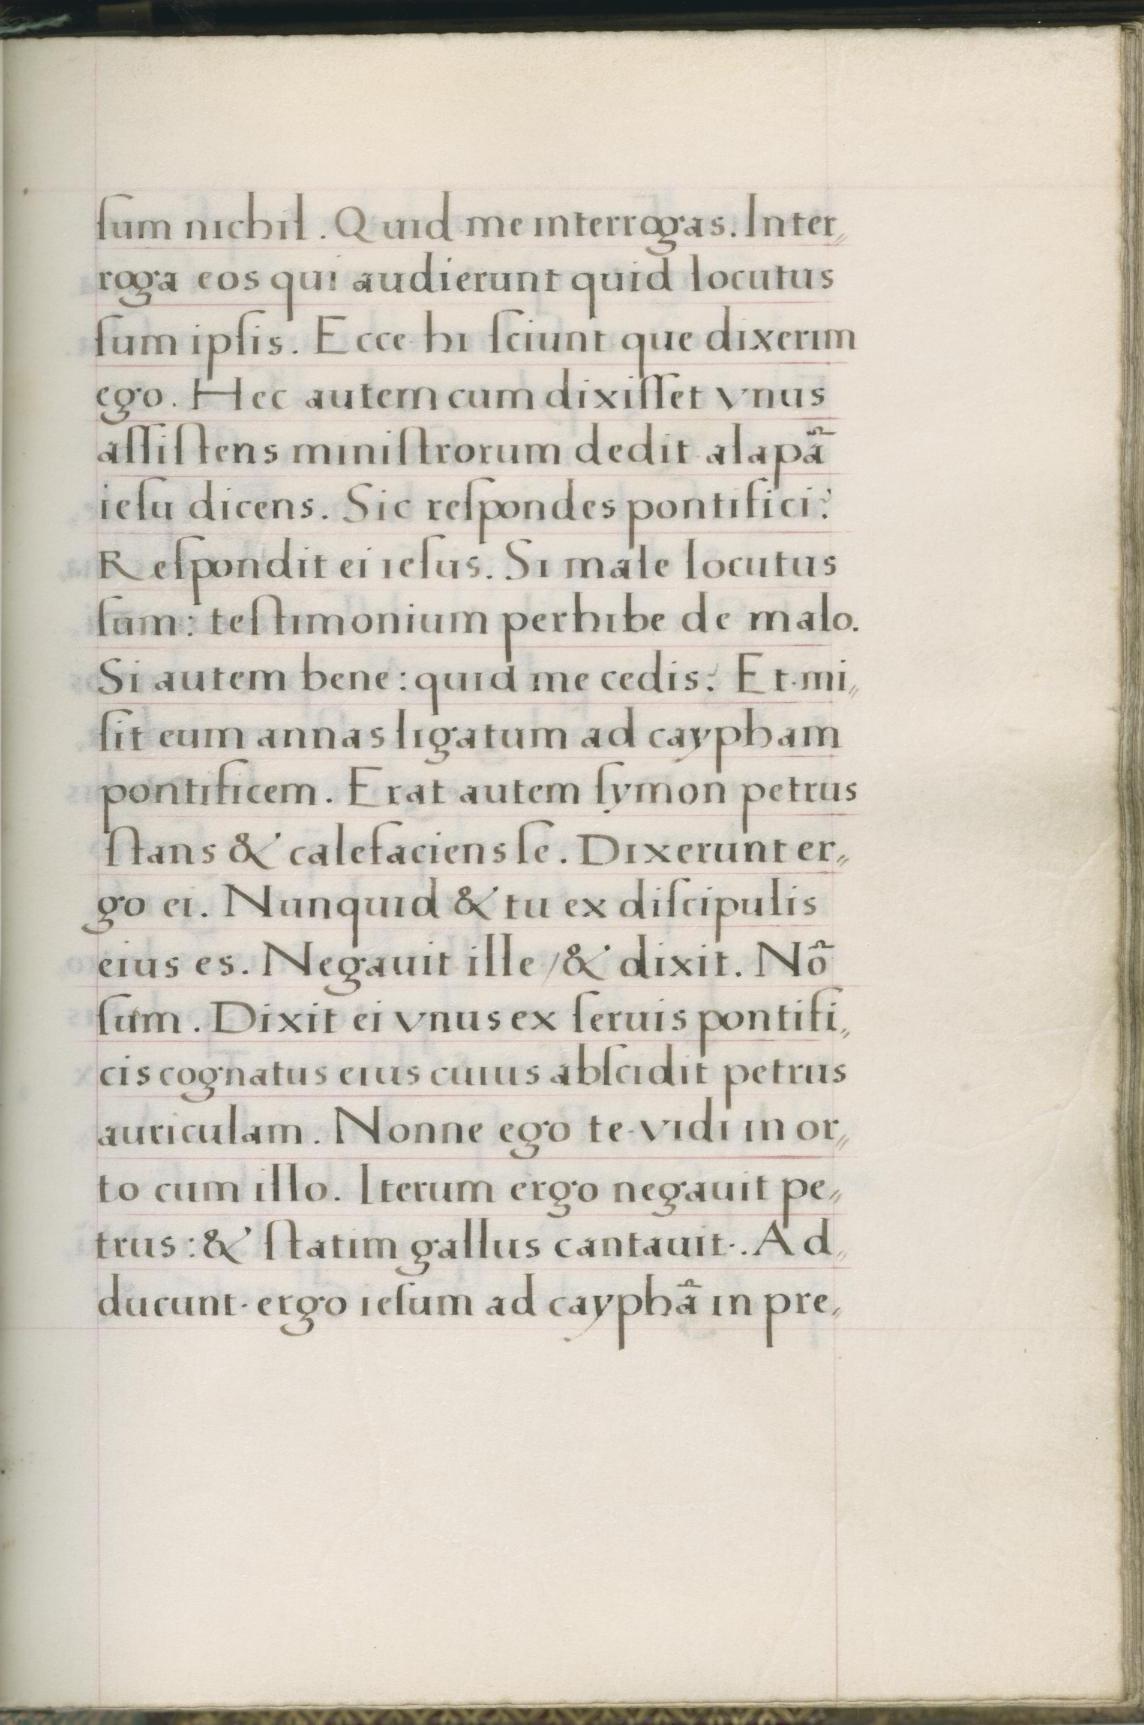 ſum nichil. Quid me interrogas. Inter〃
roga eos qui audierunt quid locutus
ſum ipſis. Ecce hi ſciunt que dixerim
ego. Hec autem cum dixiſſet vnus
aſſiſtens miniſtrorum dedit alapã
ieſu dicens. Sic reſpondes pontifici?
Reſpondit ei ieſus. Si male locutus
ſum: teſtimonium perhibe de malo.
Si autem bene: quid me cedis? Et mi〃
ſit eum annas ligatum ad caypham
pontificem. Erat autem ſymon petrus
ſtans & calefaciens ſe. Dixerunt er〃
go ei. Nunquid & tu ex diſcipulis
eius es. Negauit ille / & dixit. Nõ
ſum. Dixit ei vnus ex ſeruis pontifi〃
cis cognatus eius cuius abſcidit petrus
auriculam. Nonne ego te vidi in or〃
to cum illo. Iterum ergo negauit pe〃
trus: & ſtatim gallus cantauit. Ad〃
ducunt ergo ieſum ad cayphã in pre〃